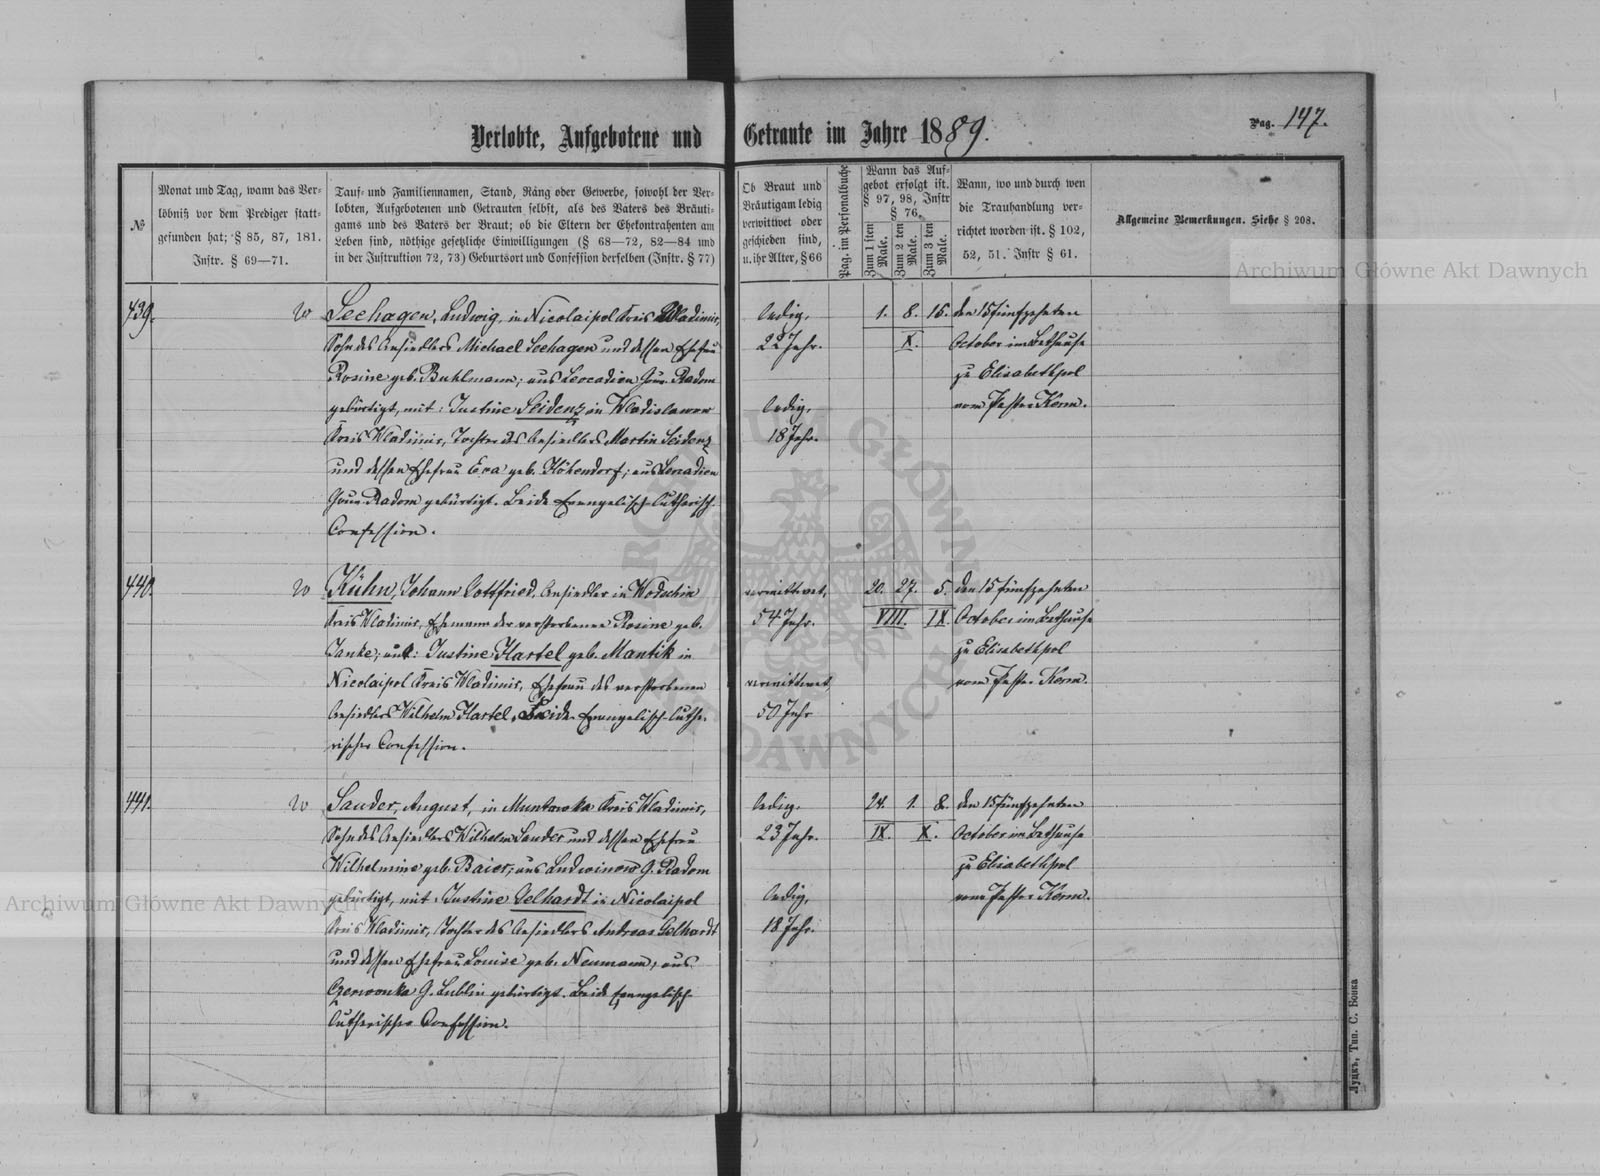 Verlobte, Aufgebotene und Getraute im Jahre 1889.
Pag. 147.
№
Monat und Tag, wann das Ver-
löbniß vor dem Prediger statt-
gefunden hat; § 85, 87, 181.
Instr. § 69—71.
Tauf- und Familiennamen, Stand, Rang oder Gewerbe, sowohl der Ver-
lobten, Aufgebotenen und Getrauten selbst, als des Vaters des Bräuti-
gams und des Vaters der Braut; ob die Eltern der Ehekontrahenten am
Leben sind, nöthige gesetzliche Einwilligungen (§ 68—72, 82—84 und
in der Instruktion 72, 73) Geburtsort und Confession derselben (Instr. § 77)
Ob Braut und
Bräutigam ledig
verwittwet oder
geschieden sind,
u. ihr Alter, § 66
Pag. im Personalbuche
Wann das Auf-
gebot erfolgt ist.
§ 97, 98, Instr
§ 76.
Zum 1 sten
Male.
Zum 2 ten
Male.
Zum 3 ten
Male.
Wann, wo und durch wen
die Trauhandlung ver-
richtet worden ist. § 102,
52, 51. Instr § 61.
Allgemeine Bemerkungen. Siehe § 208.
439.
Seehagen, Ludwig, in Nicolaipol Kreis Wladimir,
Sohn des Ansiedlers Michael Seehagen und dessen Ehefrau
Rosine geb. Buhlmann; aus Leocadien Gouv. Radom
gebürtigt, mit: Justine Seidenz in Wladislawow
Kreis Wladimir, Tochter des Ansiedlers Martin Seidenz
und dessen Ehefrau Eva geb. Höhendorf; aus Leocadien
Gouv Radom gebürtigt. Beide Evangelisch-Lutherisch.
Confession.
ledig,
22 Jahr.
ledig,
18 Jahr.
1. 8. 15.
X.
den 15 fünfzehnten
October im Bethause
zu Elisabethpol
vom Pastor Kerm.
440.
Kühn, Johann Gottfried, Ansiedler in Wodschin
Kreis Wladimir, Ehemann der verstorbenen Rosine geb.
Janke; und: Justine Hartel geb. Mantik in
Nicolaipol Kreis Wladimir, Ehefrau des verstorbenen
Ansiedlers Wilhelm Hartel. Beide Evangelisch-Luthe-
rischer Confession.
verwittwet,
54 Jahr.
verwittwet
50 Jahr
20. 27. 5.
VIII. IX.
den 15 fünfzehnten
October im Bethause
zu Elisabethpol
vom Pastor Kerm.
441.
Sauder, August, in Muntawka Kreis Wladimir,
Sohn des Ansiedlers Wilhelm Sauder und dessen Ehefrau
Wilhelmine geb. Baier; aus Ludwinow G. Radom
gebürtigt, mit: Justine Gelhardt in Nicolaipol
Kreis Wladimir, Tochter des Ansiedlers Andreas Gelhardt
und dessen Ehefrau Louise geb. Neumann, aus
Czerwonka G. Lublin gebürtigt. Beide Evangelisch-
Lutherischer Confession.
ledig.
23 Jahr.
ledig,
18 Jahr.
24. 1. 8.
IX. X.
den 15 fünfzehnten
October im Bethause
zu Elisabethpol
vom Pastor Kerm.
Луцкъ, Тип. С. Бонка
Archiwum Główne Akt Dawnych
Archiwum Główne Akt Dawnych